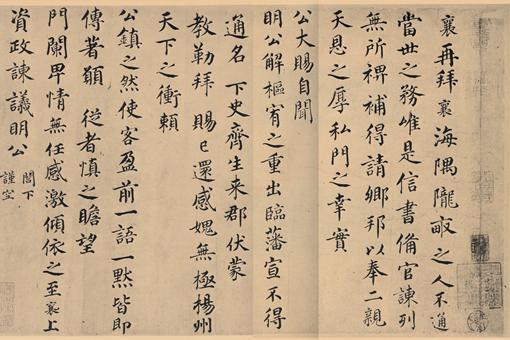 襄再拜襄海隅隴畝之人不通
當世之務唯是信書備官諫列
無所裨補得請鄉邦以奉二親
天恩之厚私門之幸實
公大賜自聞
明公解樞宥之重出臨藩宣不得
通名 下史齊生来郡伏蒙
教勒拜 賜已還感愧無極楊州
天下之衝賴
公鎮之然使客盈前一語一默皆即
傳著願 從者慎之瞻望
門闌卑情無任感激傾依之至襄上
資政諫議明公 閤下
謹空